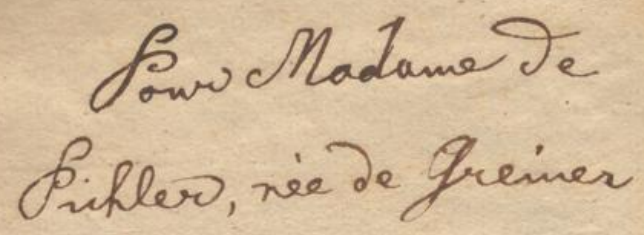 Pour Madame de
Pichler, née de Greiner